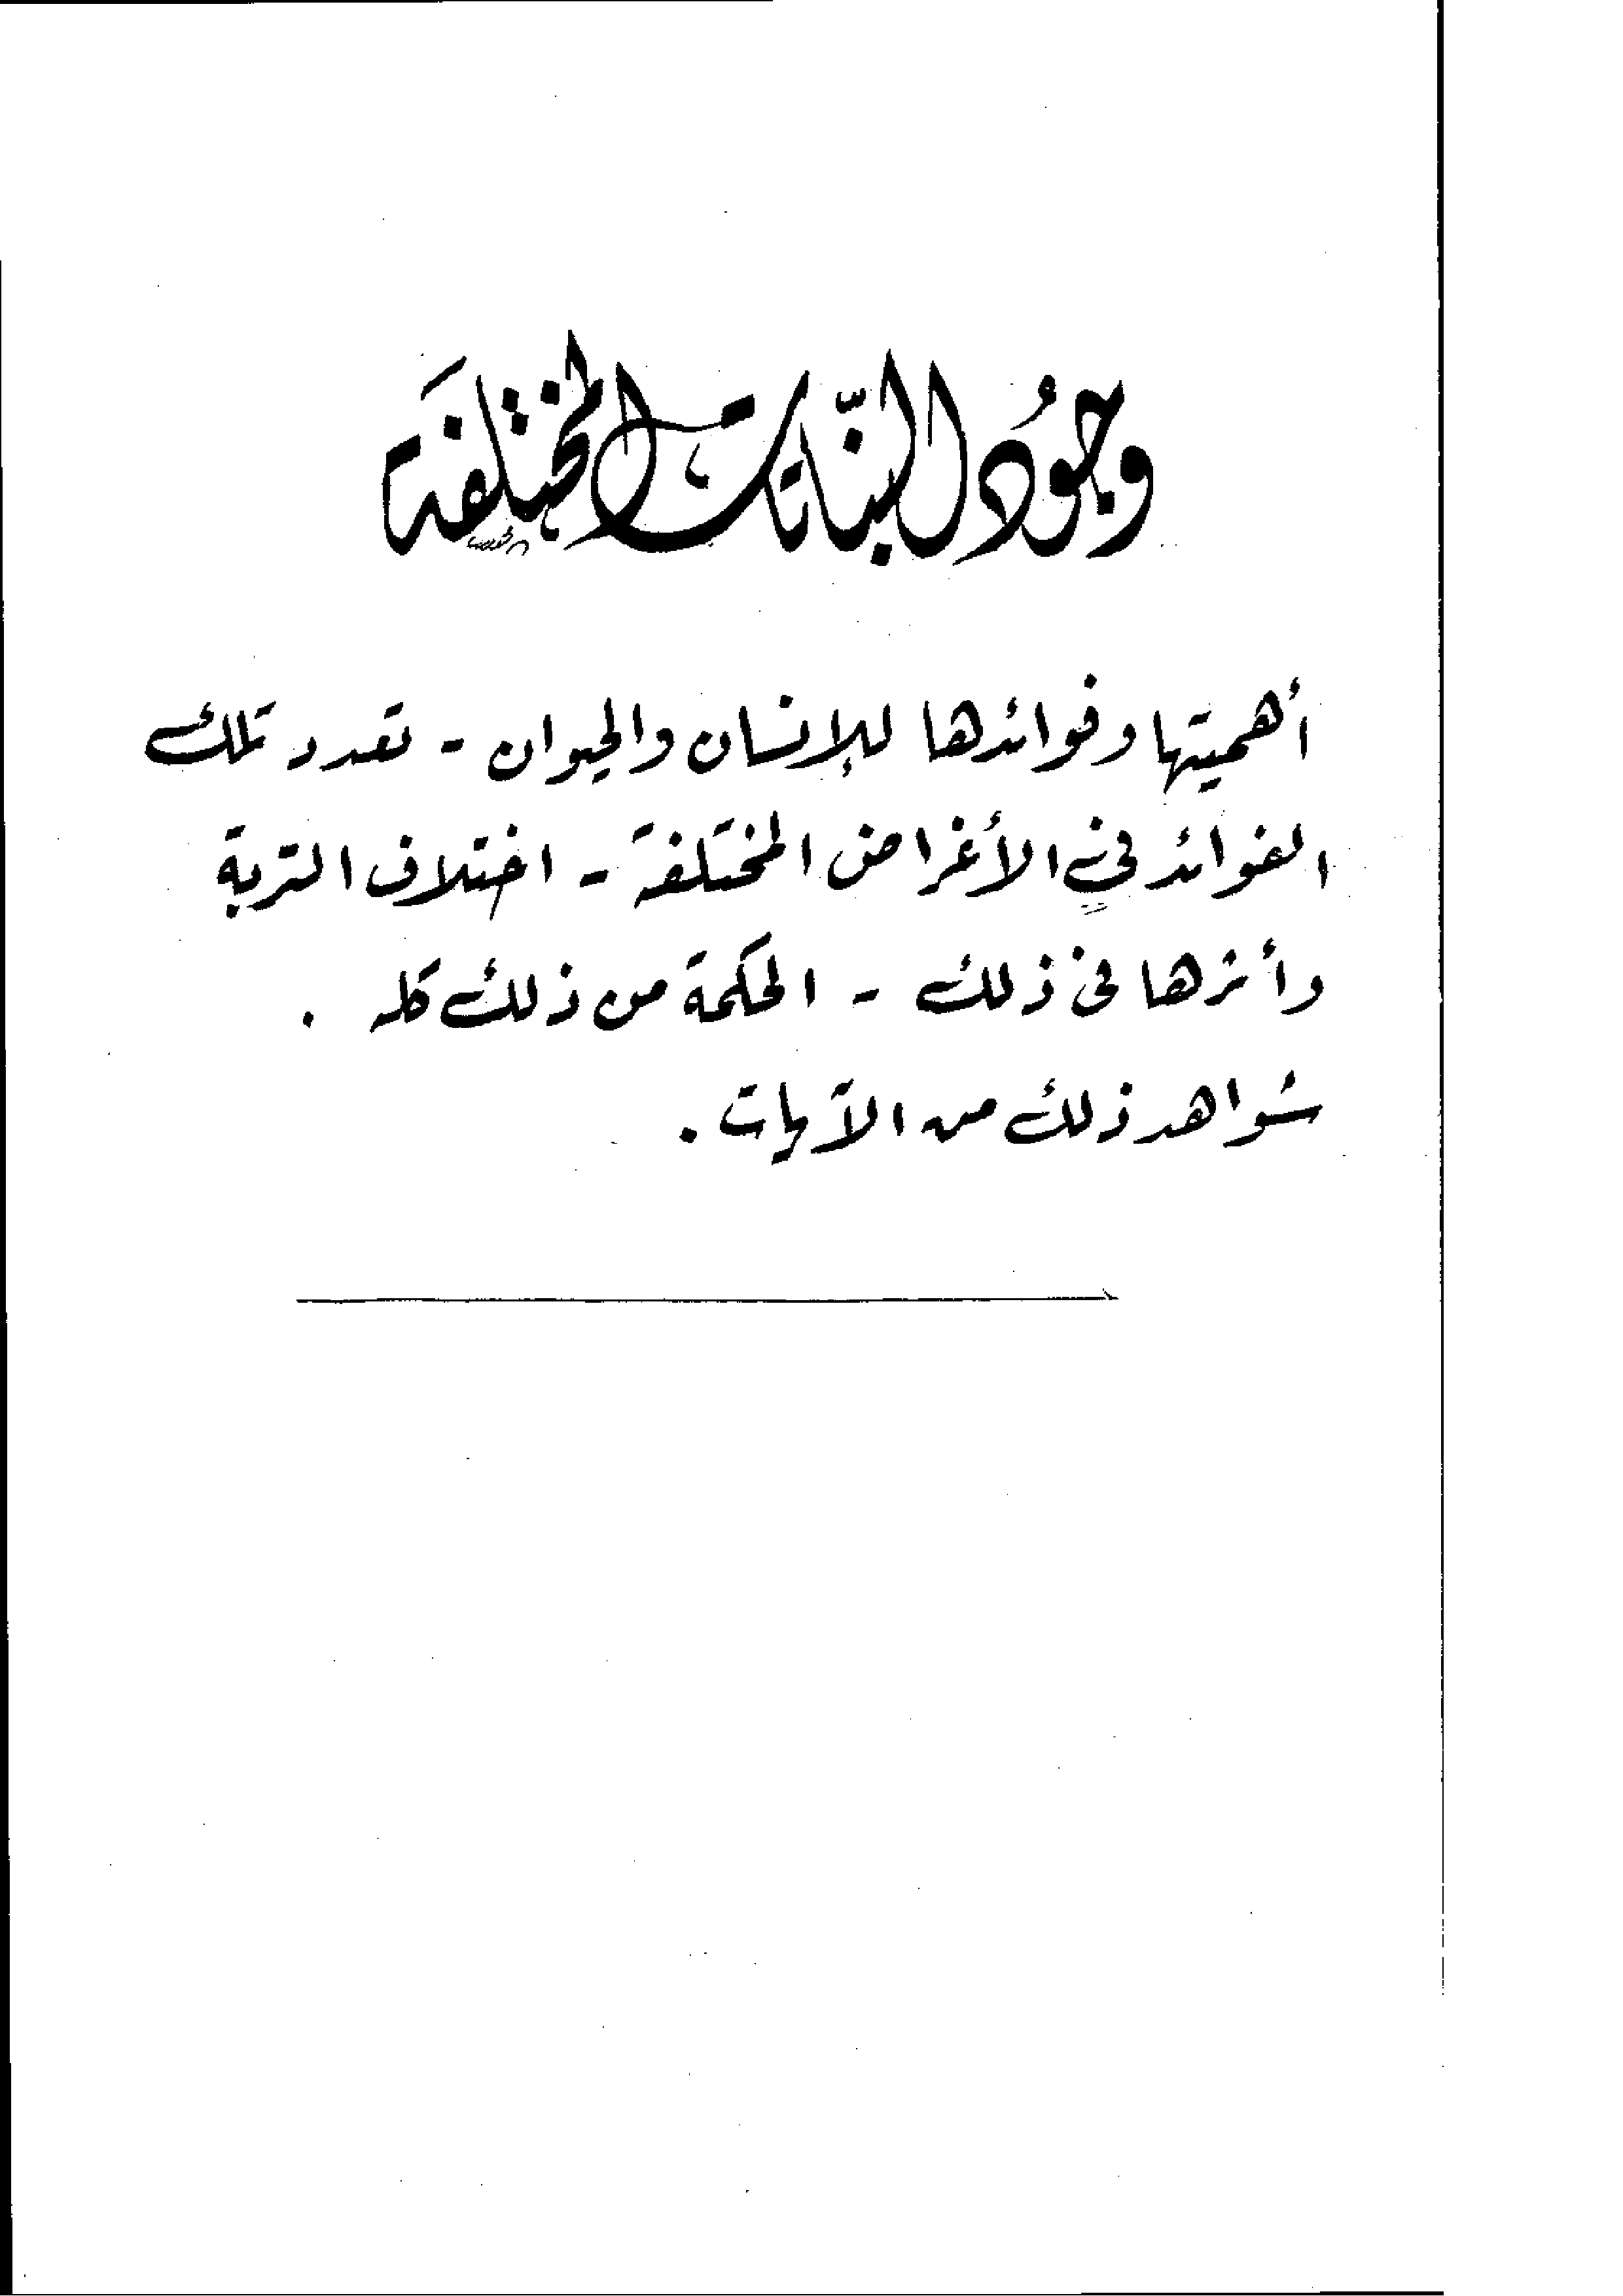 وجُود النّباتات المختلفَة
أهميتها وفوائدها للإنسان والحيوان - تعدد تلك
الفوائد في الأغراض المختلفة - اختلاف التربة
وأثرها في ذلك - الحكمة من ذلك كله .
شواهد ذلك من الآيات .